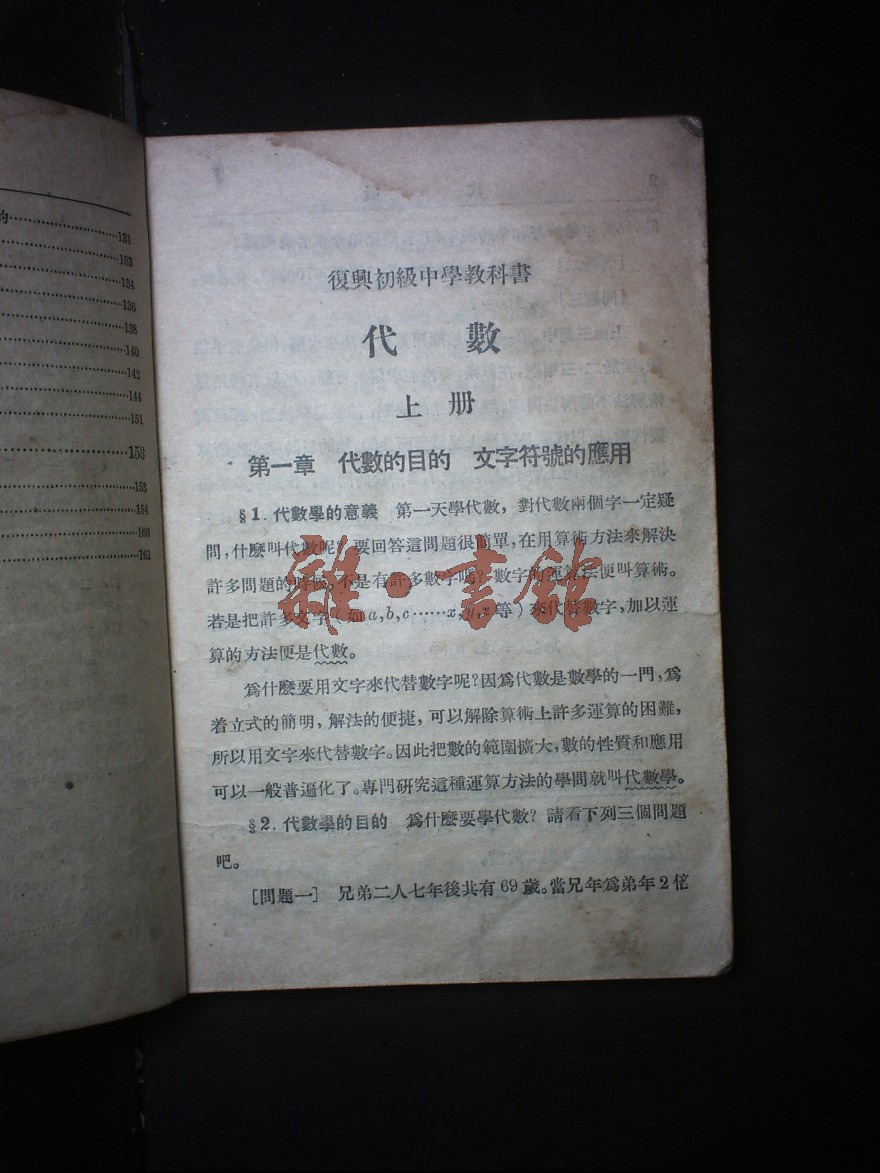 的……131
……133
……134
……136
……138
……140
……142
……144
……151
……153
……153
……154
……160
……161
復興初級中學教科書
代數
上册
第一章 代數的目的 文字符號的應用
§1. 代數學的意義 第一天學代數，對代數兩個字一定疑
問，什麽叫代數呢？要回答這問題很簡單，在用算術方法來解決
許多問題的時候，不是有許多數字嗎？數字的運算法便叫算術。
若是把許多文字（如a,b,c……x,y,z等）來代替數字，加以運
算的方法便是代數。
爲什麽要用文字來代替數字呢？因爲代數是數學的一門，爲
着立式的簡明，解法的便捷，可以解除算術上許多運算的困難，
所以用文字來代替數字。因此把數的範圍擴大，數的性質和應用
可以一般普遍化了。專門研究這種運算方法的學問就叫代數學。
§2. 代數學的目的 爲什麽要學代數？請看下列三個問題
吧。
[問題一] 兄弟二人七年後共有69歲。當兄年爲弟年2倍
雜·書館